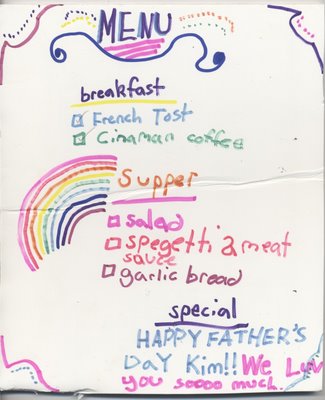 MENU
breakfast
French Tost
Cinaman coffee
Supper
salad
spegetti & meat
sauce
garlic bread
special
HAPPY FATHER'S
DaY Kim!! We Luv
you soooo much.